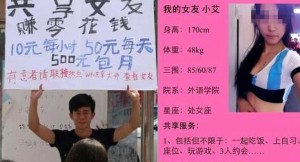 共享女友
赚零花钱
10元每小时 50元每天
500元包月
有意者请联
我的女友 小艾
身高:170cm
体重:48kg
三围:85/60/87
院系:外语学院
星座:处女座
共享服务:
1、包括但不限于:一起吃饭、上自习
座位、玩游戏、3人约会……